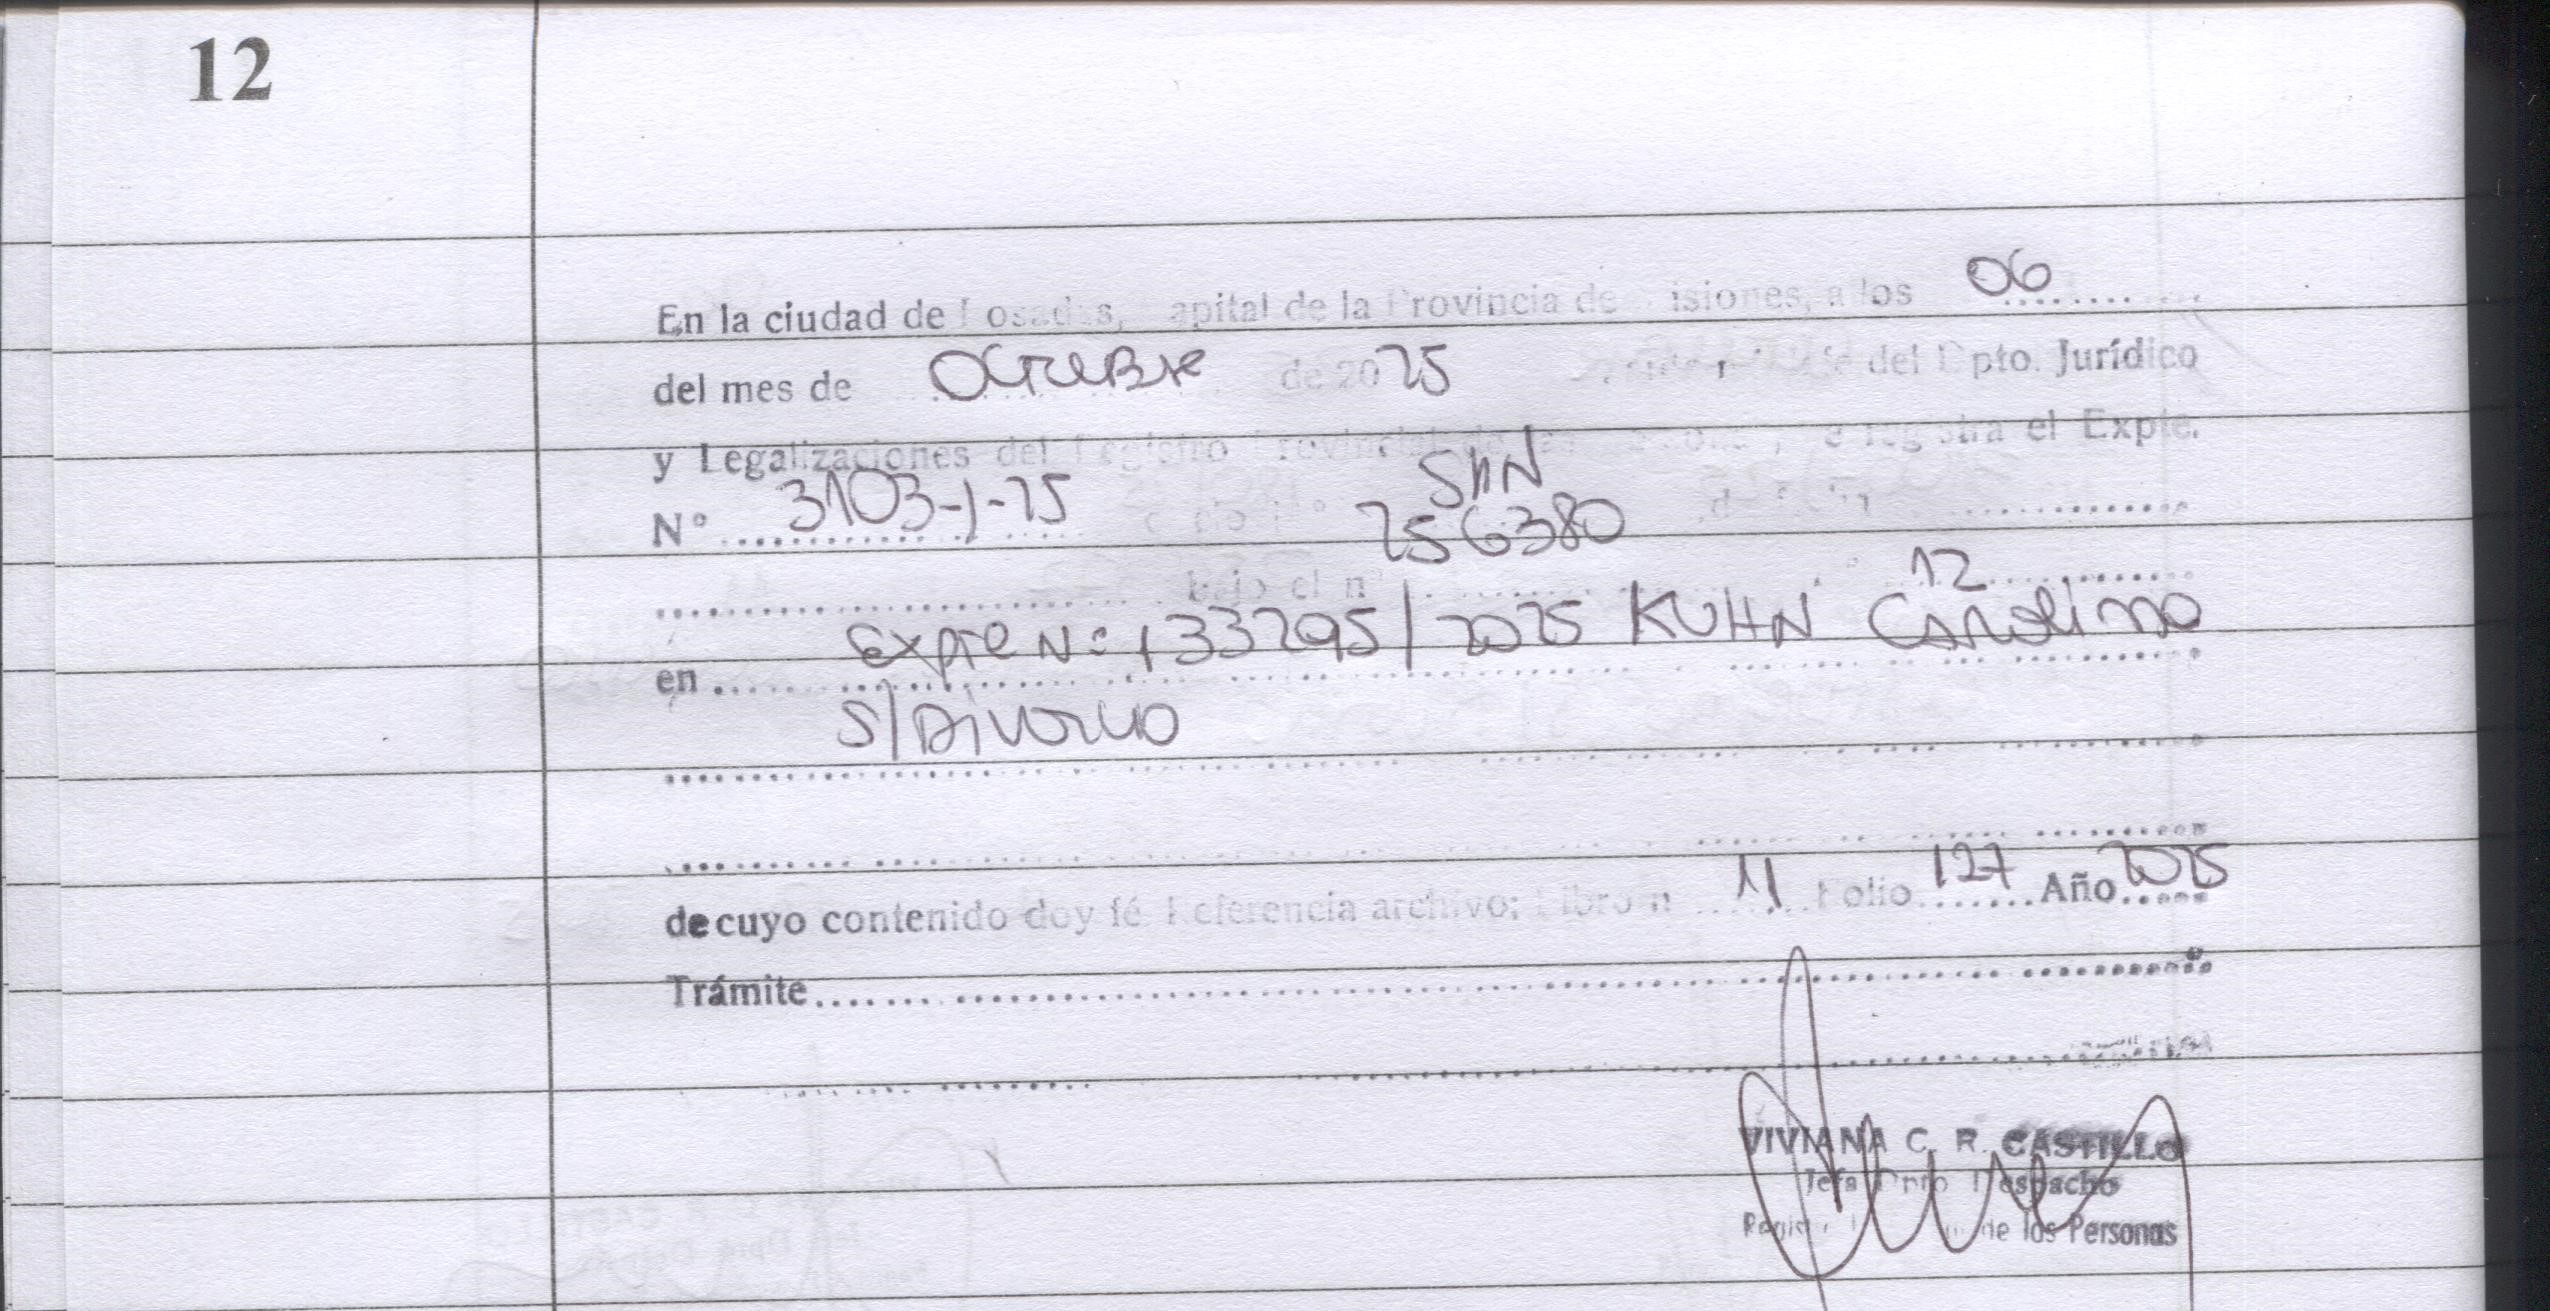 12
En la ciudad de Posadas, Capital de la Provincia de Misiones, a los 06
del mes de Octubre de 2025 del Dpto. Jurídico
y Legalizaciones del Registro Provincial de las Personas, se registra el Expte.
N° 3103-J-25 Oficio N° SNN 256380
bajo el n° 12
en Expte N: 133295/2025 KUHN Carolina
S/Divorcio
de cuyo contenido doy fé. Referencia archivo: Libro n 11 Folio 127 Año 2025
Trámite
VIVIANA C. R. CASTILLO
Jefa Dpto. Despacho
de las Personas